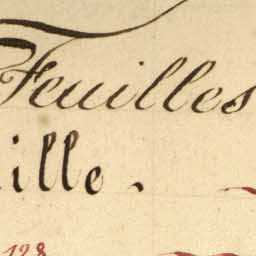 Feuilles
ille.
128